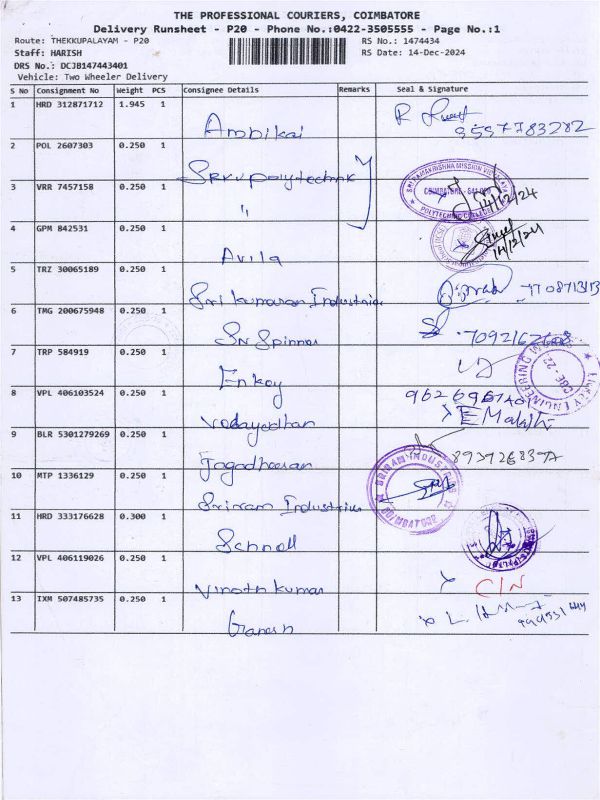 THE PROFESSIONAL COURIERS, COIMBATORE
Delivery Runsheet - P20 - Phone No.:0422-3505555 - Page No.:1
Route: THEKKUPALAYAM - P20 RS No.: 1474434
Staff: HARISH RS Date: 14-Dec-2024
DRS No.: DCJB147443401
Vehicle: Two Wheeler Delivery
S No Consignment No Weight PCS Consignee Details Remarks Seal & Signature
1 HRD 312871712 1.945 1
Ambikai 9597783282
2 POL 2607303 0.250 1
SRKV polytechnic
3 VRR 7457158 0.250 1
" 14/12/24
COIMBATORE
POLYTECHNIC COLLEGE
4 GPM 842531 0.250 1
Avila 14/12/24
5 TRZ 30065189 0.250 1
Sri Kumaran Industries
6 TMG 200675948 0.250 1
Sri Spinner
7 TRP 584919 0.250 1
Enkay
8 VPL 406103524 0.250 1
CBE-22
9 BLR 5301279269 0.250 1
Jagadheesan
10 MTP 1336129 0.250 1
Sriram Industries
SRIRAM INDUSTRIES
COIMBATORE
11 HRD 333176628 0.300 1
Schnell
12 VPL 406119026 0.250 1
Vinoth kumar C/N
13 IXM 507485735 0.250 1
Ganesh